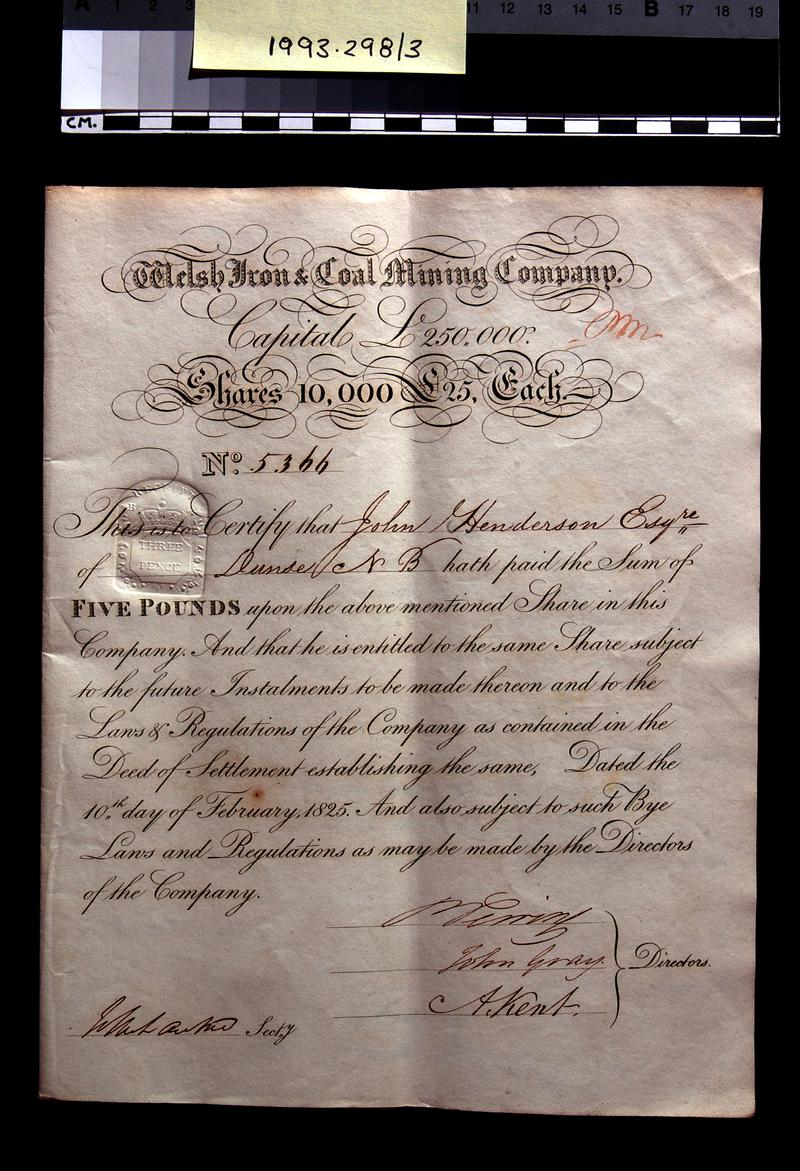 A 1 2 3 11 12 13 14 15 B 17 18 19
1993.298/3
CM.
Welsh Iron & Coal Mining Company.
Capital £250,000.
Shares 10,000 £25, Each.
No. 5366
This is to Certify that John Henderson Esqre
THREE
PENCE
of Dunse N B hath paid the Sum of
FIVE POUNDS upon the above mentioned Share in this
Company. And that he is entitled to the same Share subject
to the future Instalments to be made thereon and to the
Laws & Regulations of the Company as contained in the
Deed of Settlement establishing the same, Dated the
10th day of February, 1825. And also subject to such Bye
Laws and Regulations as may be made by the Directors
of the Company.
John Gray
Directors.
A. Kent.
Secty